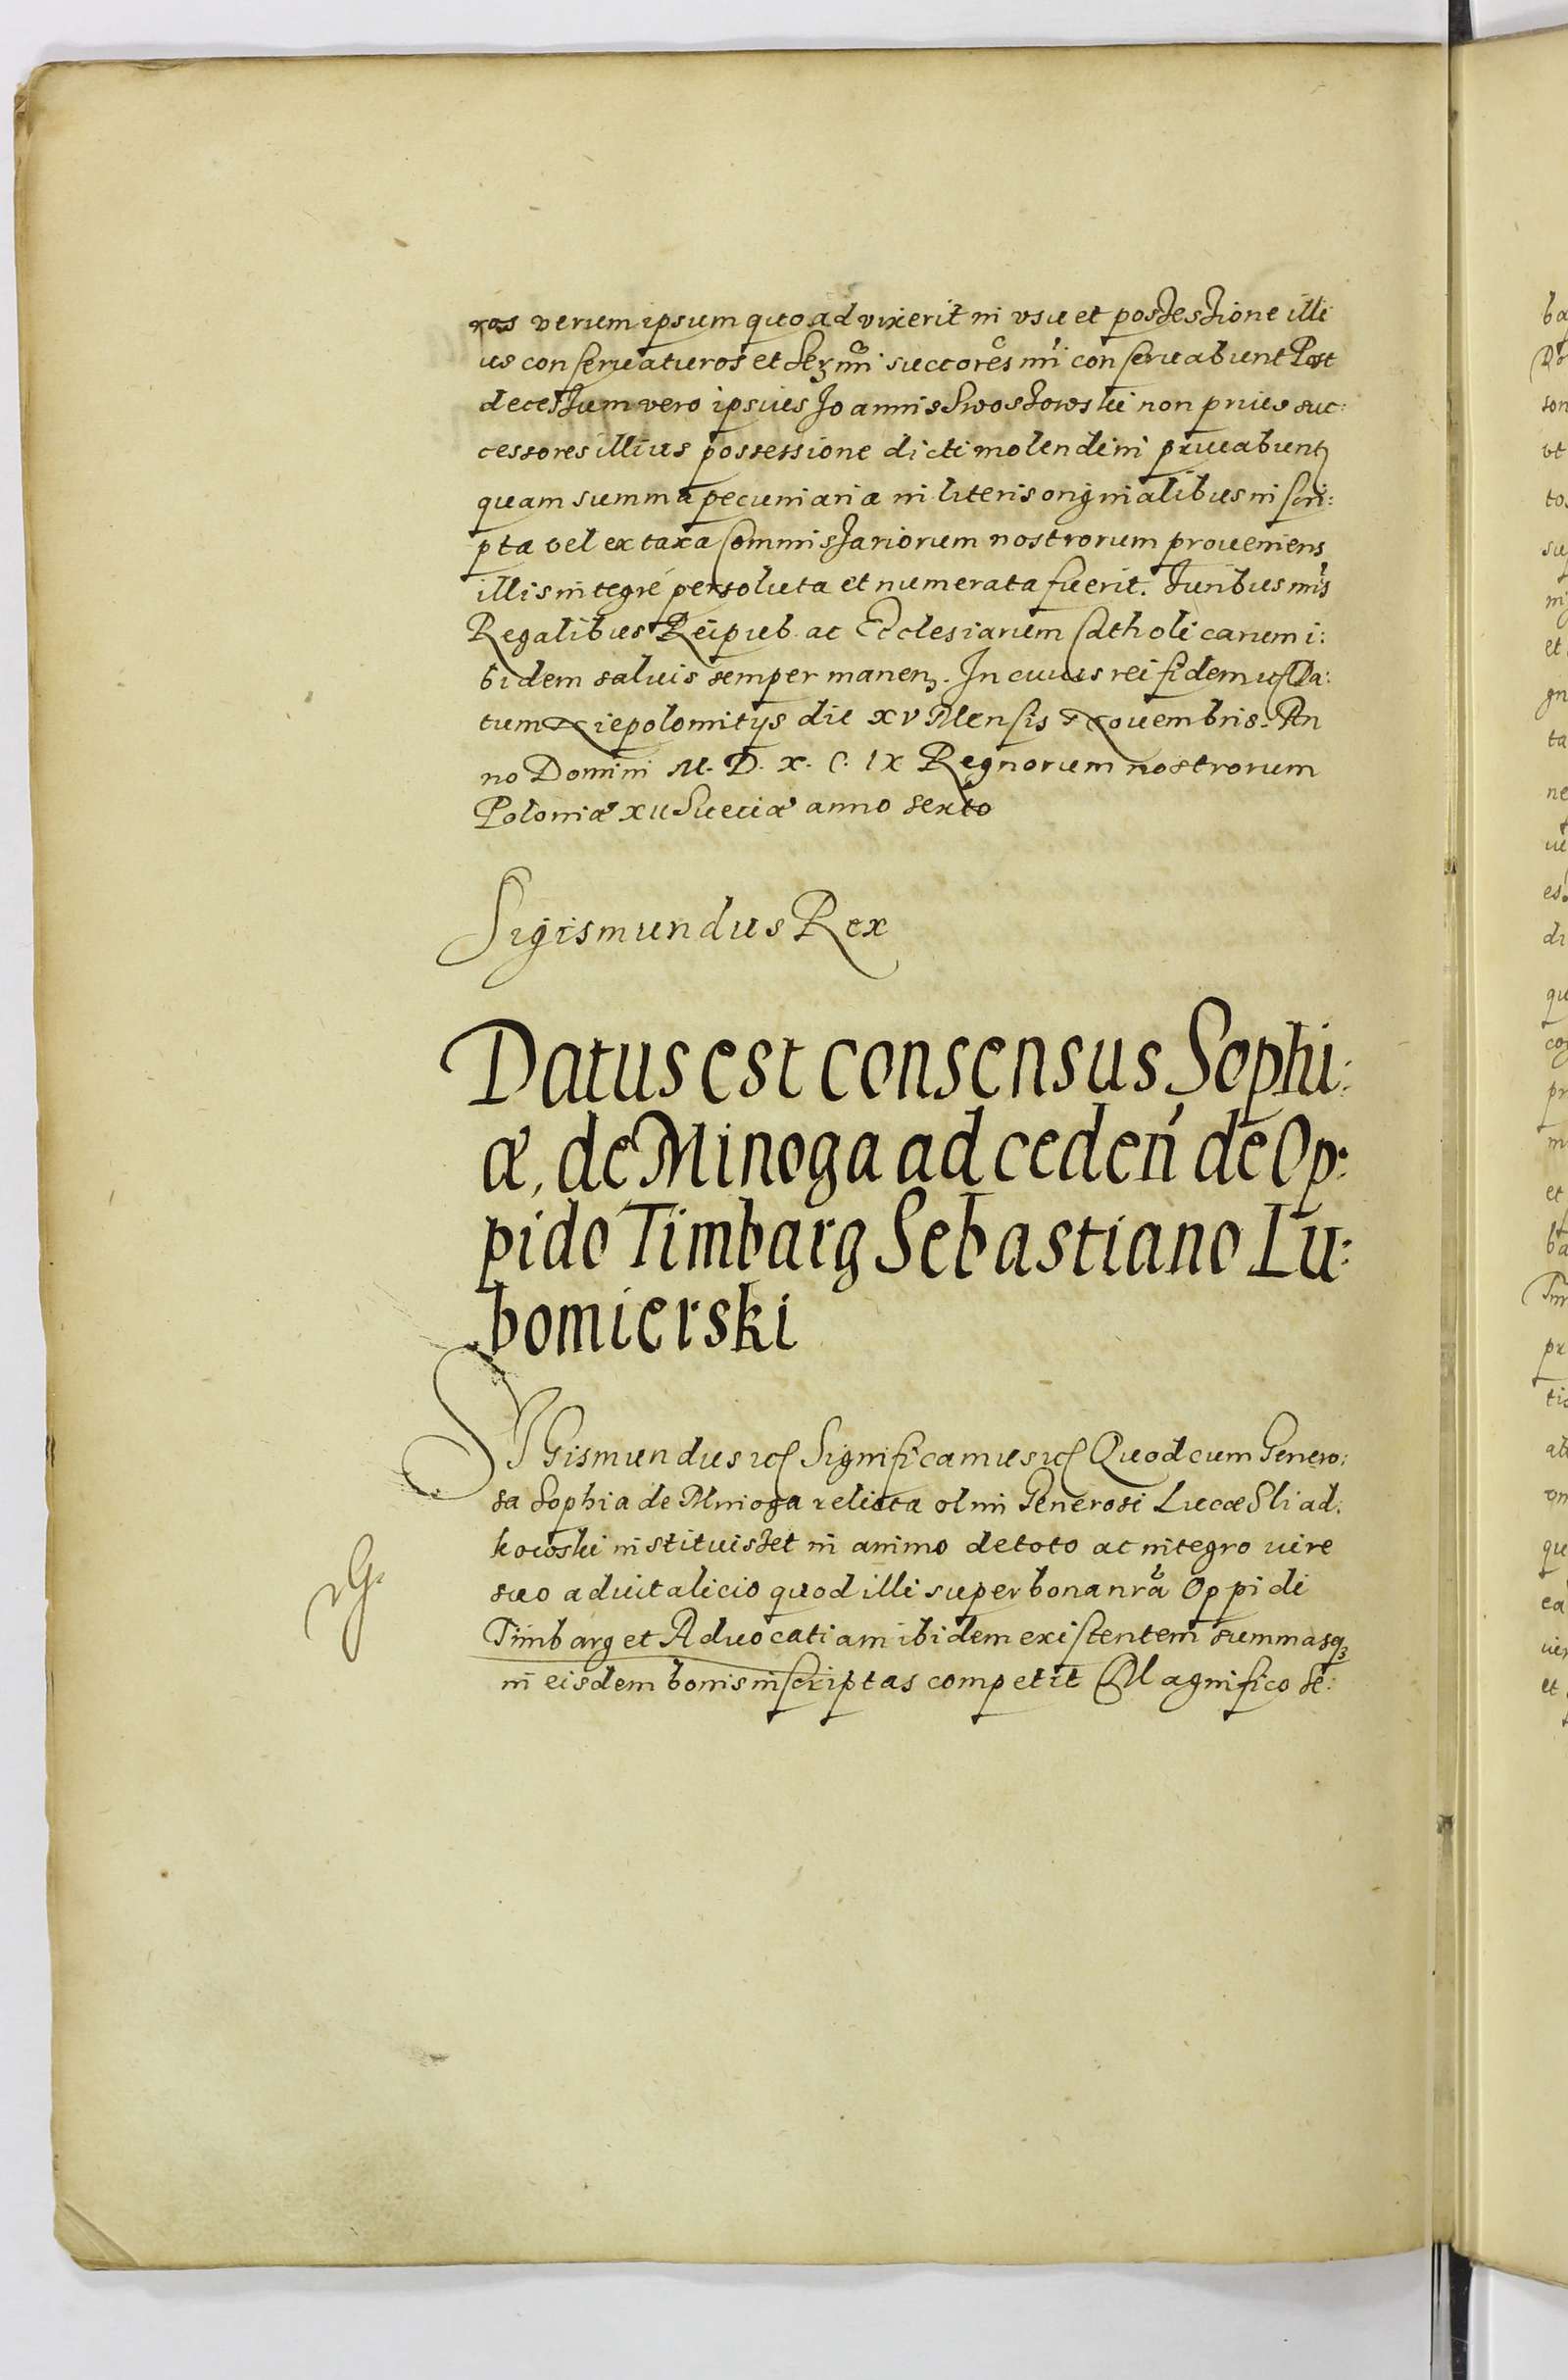 ros verum ipsum quoad vixerit in vsu et possessione illi
us conseruaturos et Serm̃i succorẽs nri conseruabunt Post
decessum vero ipsius Joannis Swosowski non prius suc:
cessores illius possessione dicti molendini priuabunt
quam summa pecuniaria in literis originalibus inscri:
pta vel ex taxa Commissariorum nostrorum proueniens
illis integré persoluta et numerata fuerit. Juribus nris
Regalibus Reipub. ac Ecclesiarum Catholicarum i:
bidem saluis semper manen. In cuius rei fidem Da:
tum Niepolomitys die XV Mensis Nouembris. An
no Domini M. D. X. C. IX Regnorum nostrorum
Poloniæ XII Sueciæ anno sexto
Sigismundus Rex
Datus est consensus Sophi:
æ, de Minoga ad ceden̄ de Op:
pido Timbarg Sebastiano Lu:
bomierski
SIGismundus Significamus Quod cum Genero:
sa Sophia de Mnioga relicta olim Generosi Lucæ Sliad:
kowski instituisset in animo de toto ac integro iure
suo aduitalicio quod illi super bona nrã Oppidi
Timbarg et Aduocatiam ibidem existentem summasq3
in eisdem bonis inscriptas competit Magnifico Se: